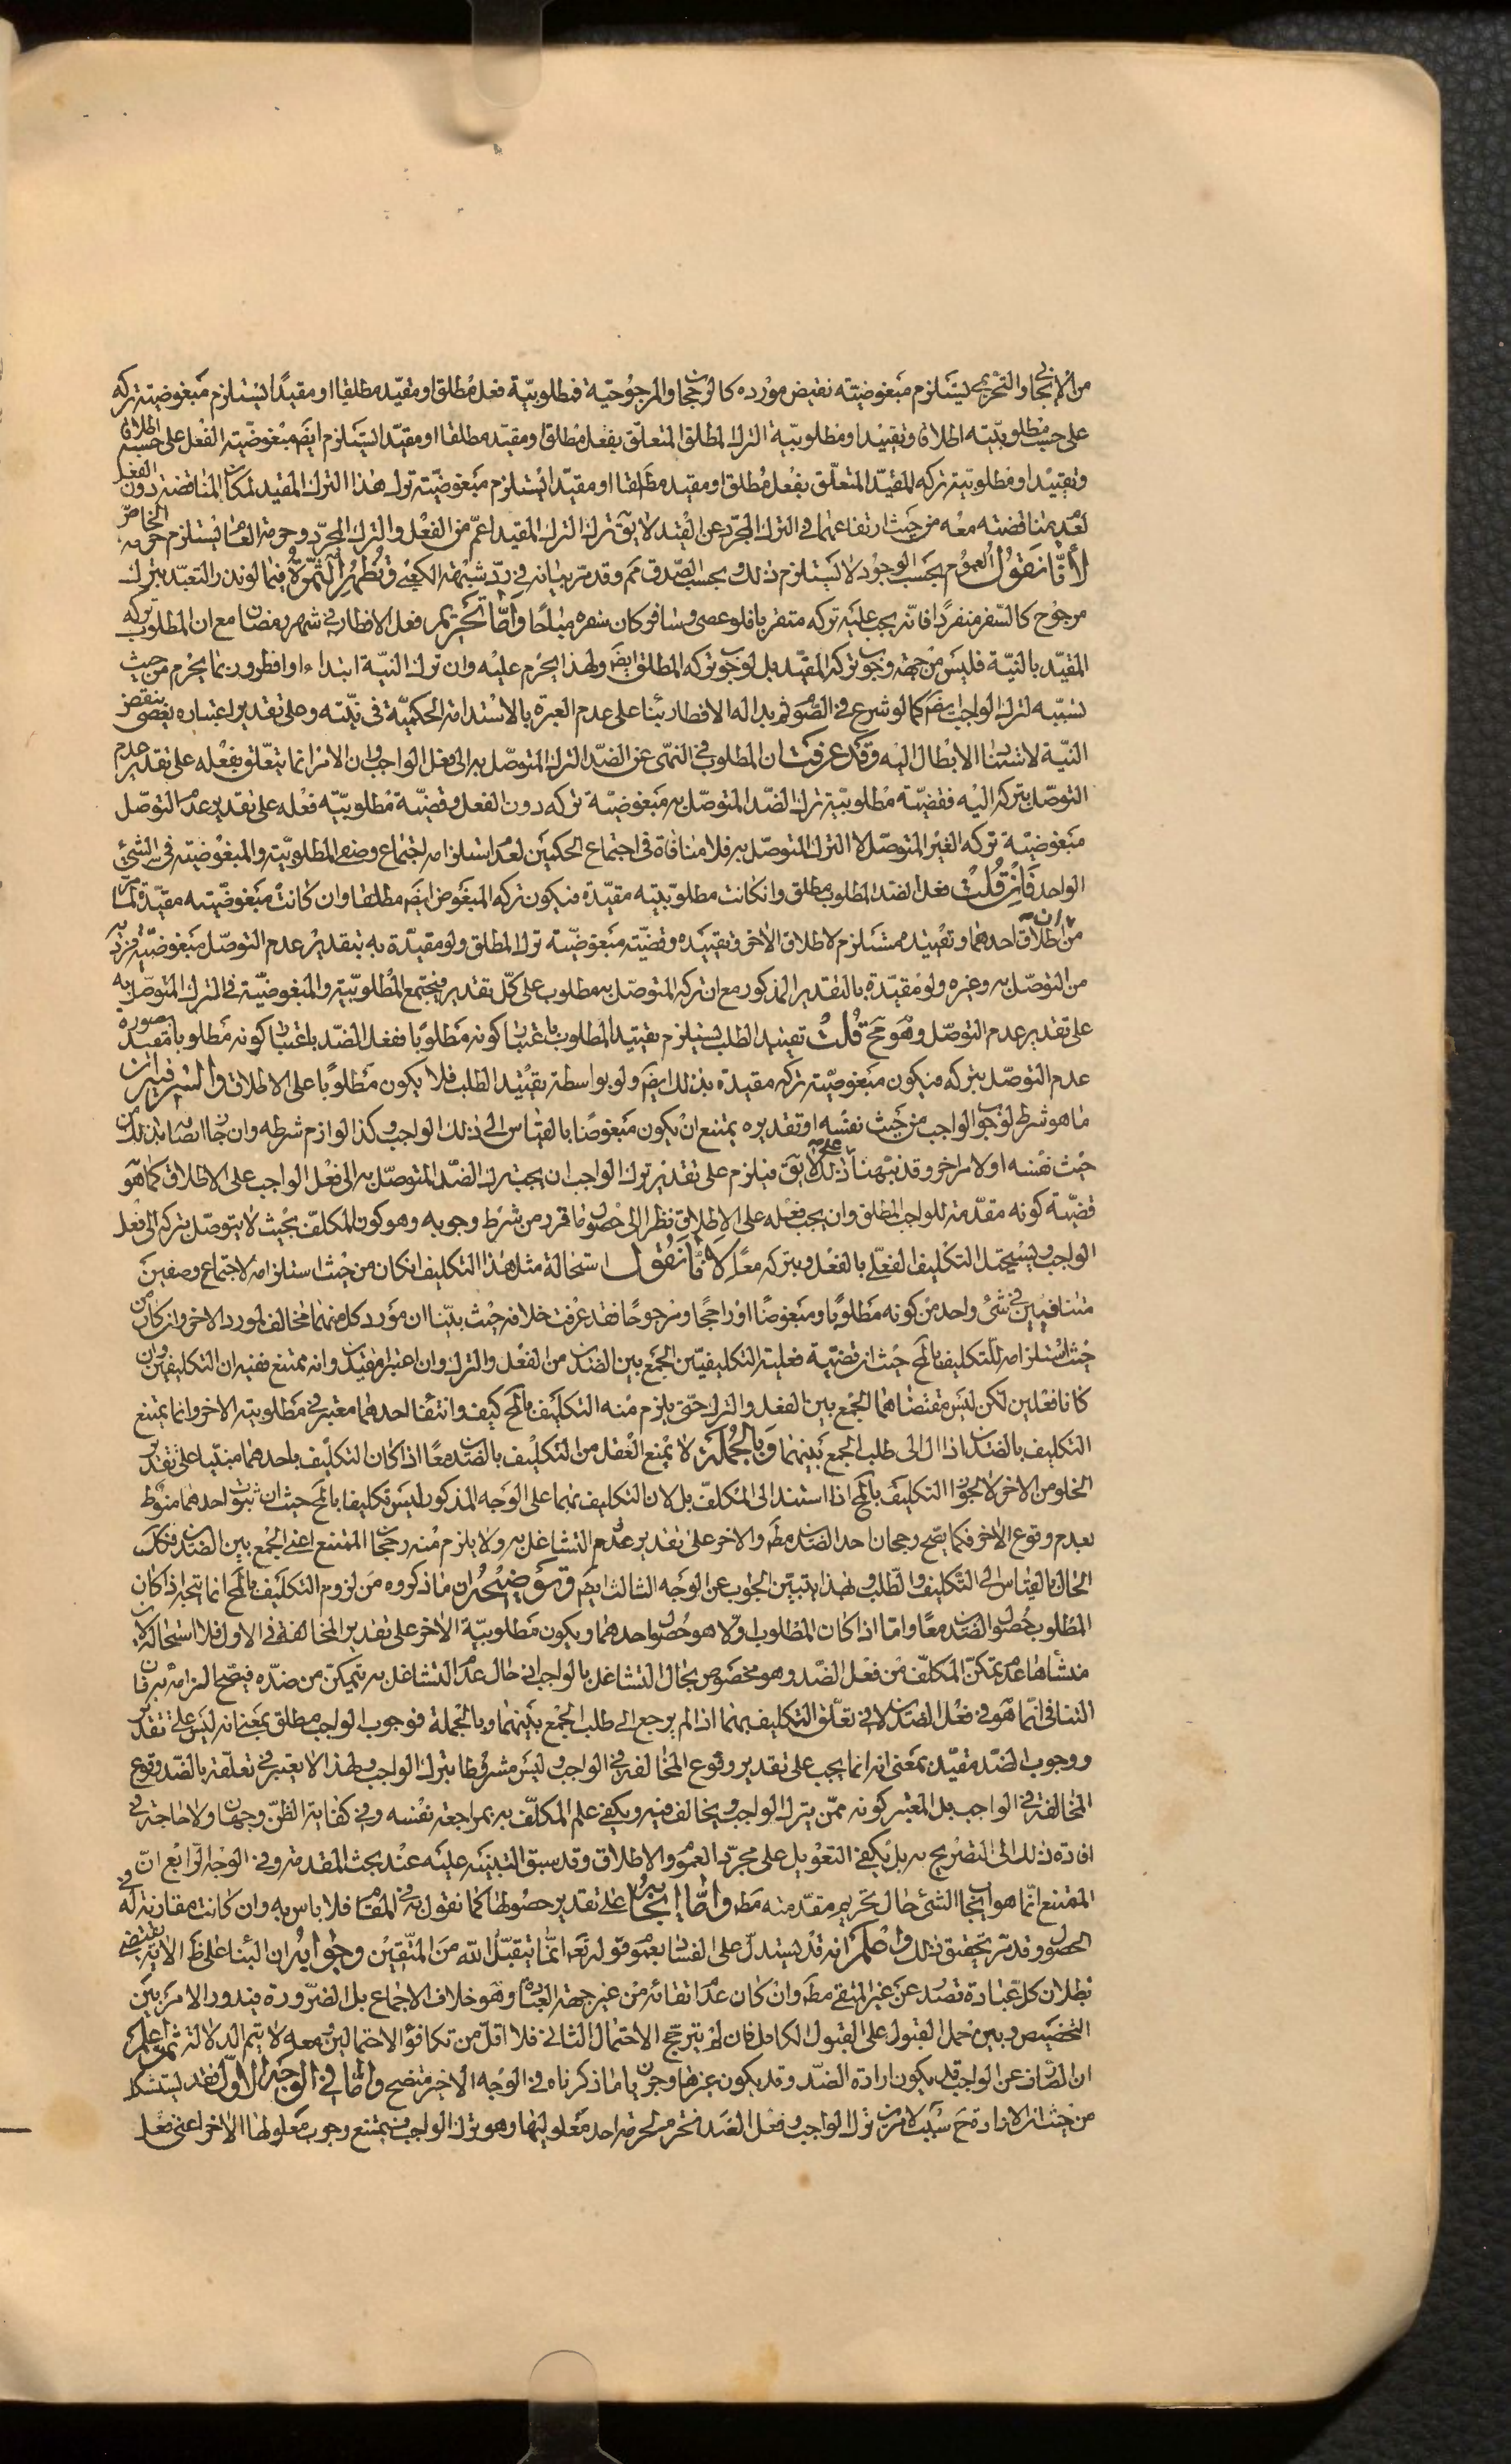 من الإيجاب والتحريم يستلزم مبغوضيته نقيض مورده كالرجحان والمرجوحية فمطلوبيّة فعل مطلق او مقيّد مطلقا او مقيدًا يستلزم مبغوضيته تركه
على حسب مطلوبيّته اطلاقا وتقييدا ومطلوبيّة الترك المطلق المتعلّق بفعل مطلق او مقيد مطلقا او مقيّدا يستلزم ايضا مبغوضيّة الفعل على حسبه اطلاقا
وتقييدا ومطلوبيّة تركه المقيّد المتعلّق بفعل مطلق او مقيد مطلقا او مقيّدا يستلزم مبغوضيّته ترك هذا الترك المقيد لمكان المناقضة دون الفعل
لعدم مناقضته معه من حيث ارتفاعهما في الترك المجرّد عن القيد لا يق ترك الترك المقيد اعمّ من الفعل والترك المجرّد وحرمة العام يستلزم حرمة الخاصّ
لأنّا نقول العموم بحسب الوجود لا يستلزم ذلك وبحسب الصّدق مم وقد مرّ بيانه في ردّ شبهة الكعبي وتظهر الثمرة فيما لو نذر التعبّد بترك
مرجوح كالسّفر منفردًا فانّه يجب عليه تركه متقربا فلو عصى وسافر كان سفره مباحًا وأمّا تحريم فعل الافطار في شهر رمضان مع ان المطلوب تركه
المقيّد بالنيّة فليس من جهة وجوب تركه المقيّد بل لوجوب تركه المطلق ايضا ولهذا يحرم عليه وان ترك النيّة ابتداء او افطر وربما يحرم من حيث
تسبّبه لترك الواجب ايضا كما لو شرع في الصّوم ثم بدا له الافطار بناء على عدم العبرة بالاستدامة الحكميّة في نيّته وعلى تقدير اعتباره يعصى بنقض
النيّة لاستناد الابطال اليه وقد عرفت ان المطلوب في النهى عن الضدّ الترك المتوصّل به الى فعل الواجب وان الامر انما يتعلّق بفعله على تقدير عدم
التوصّل بتركه اليه فقضيّة مطلوبيّة ترك الضدّ المتوصّل به مبغوضيّة تركه دون الفعل وقضيّة مطلوبيّة فعله على تقدير عدم التوصّل
مبغوضيّة تركه الغير المتوصّل لا الترك المتوصّل به فلا منافاة في اجتماع الحكمين لعدم استلزامه اجتماع وصفى المطلوبيّة والمبغوضيّة في الشيء
الواحد فإن قلت فعل الضد المطلوب مطلق وان كانت مطلوبيّته مقيّدة فيكون تركه المبغوض ايضا مطلقا وان كانت مبغوضيّته مقيّدة لما مرّ
من ان اطلاق احدهما وتقييده مستلزم لاطلاق الاخر وتقييده وقضيّة مبغوضيّة ترك المطلق ولو مقيّدة به بتقدير عدم التوصّل مبغوضيّة فرديه
من التوصّل به وغيره ولو مقيّدة بالتقدير المذكور مع ان تركه المتوصّل به مطلوب على كلّ تقدير فيجتمع المطلوبيّة والمبغوضيّة في الترك المتوصّل به
على تقدير عدم التوصّل وهو مح قلت تقييد الطلب يستلزم تقييد المطلوب باعتبار كونه مطلوبًا ففعل الضدّ باعتبار كونه مطلوبا مقيد بصورة
عدم التوصّل بتركه فيكون مبغوضيّة تركه مقيدة بذلك ايضا ولو بواسطة تقييد الطلب فلا يكون مطلوبًا على الاطلاق والسّر فيه ان
ما هو شرط لوجوب الواجب من حيث نفسه او تقديره يمتنع ان يكون مبغوضًا بالقياس الى ذلك الواجب وكذا لوازم شرطه وان جاز اتصافها بذلك من
حيث نفسه او لامر اخر وقد نبّهنا على ذلك لا يق فيلزم على تقدير ترك الواجب ان يجب ترك الضدّ المتوصّل به الى فعل الواجب على الاطلاق كما هو
قضيّة كونه مقدّمة للواجب المطلق وان يجب فعله على الاطلاق نظرا الى حصول ما قرر من شرط وجوبه وهو كون المكلّف بحيث لا يتوصّل بتركه الى فعل
الواجب ويستحيل التكليف الفعلي بالفعل وبتركه معًا لأنّا نقول استحالة مثل هذا التكليف ان كان من حيث استلزامه لاجتماع وصفين
متنافيين في شئ واحد من كونه مطلوبًا ومبغوضًا او راجحًا ومرجوحًا فقد عرفت خلافه حيث بيّنا ان مورد كل منهما مخالف لمورد الاخر وان كان من
حيث استلزامه للتكليف بالمح حيث ان قضيّة فعلية التكليفين الجمع بين الضدين من الفعل والترك وان اعتبرا مقيدين وانه ممتنع ففيه ان التكليفين وان
كانا فعلين لكن ليس مقتضاهما الجمع بين الفعل والترك حتى يلزم منه التكليف بالمح كيف وانتفاء احدهما معتبر في مطلوبيّة الاخر وانما يمتنع
التكليف بالضدين اذا ال الى طلب الجمع بينهما وبالجملة لا يمنع العقل من التكليف بالضدين معًا اذا كان التكليف باحدهما مبنيا على تقدير
الخلو من الاخر لا لجواز التكليف بالمح اذا استند الى المكلّف بل لان التكليف بهما على الوجه المذكور ليس تكليفا بالمح حيث ان ثبوت احدهما منوط
بعدم وقوع الاخر فكما يصح رجحان احد الضدين مطلقا والاخر على تقدير عدم التشاغل به ولا يلزم منه رجحان الممتنع اعنى الجمع بين الضدين فكك
الحال بالقياس الى التكليف والطلب ولهذا يتبيّن الجواب عن الوجه الثالث ايضا وتوضيحه ان ما ذكروه من لزوم التكليف بالمح انما يتجه اذا كان
المطلوب حصول الضدين معًا وامّا اذا كان المطلوب اوّلا هو حصول احدهما ويكون مطلوبيّة الاخر على تقدير المخالفة في الاول فلا استحالة لان
منشأها عدم تمكن المكلّف من فعل الضدّ وهو مخصوص بحال التشاغل بالواجب ففي حال عدم التشاغل به يتمكن من ضدّه فيصّح الزامه به فان
التنافي انّما هو في فعل الضدين لا في تعلّق التكليف بهما اذا لم يرجع الى طلب الجمع بينهما وبالجملة فوجوب الواجب مطلق بمعنى انه ليس على تقدير
ووجوب الضدّ مقيّد بمعنى انه انما يجب على تقدير وقوع المخالفة في الواجب وليس مشروطا بترك الواجب ولهذا لا يعتبر في تعلّقه بالضّد وقوع
المخالفة في الواجب بل المعتبر كونه ممّن يترك الواجب ويخالف فيه ويكفي علم المكلّف به بمراجعة نفسه وفي كفاية الظنّ وجهان ولا حاجة في
افادة ذلك الى التصريح به بل يكفي التعويل على مجرّد العموم والاطلاق وقد سبق التنبيه عليه عند بحث المقدمة وفي الوجه الرابع انّ
الممتنع انّما هو ايجاب الشئ حال تحريم مقدّمته مطلقا وأمّا ايجابه على تقدير حصولها كما نقول به في المقام فلا باس به وان كانت مقارنة له في
الحصول وقد مرّ تحقيق ذلك واعلم انه قد يستدلّ على الفساد بعموم قوله تعه انّما يتقبّل الله من المتّقين وجوابه ان البناء على ظاهر الآية يقتضى
بطلان كلّ عبادة تصدر عن غير المتقى مطلقا وان كان عدم اتقائه من غير جهة العبادة وهو خلاف الاجماع بل الضّرورة فيدور الامر بين
التخصيص وبين حمل القبول على القبول الكامل فان لم يترجح الاحتمال الثاني فلا اقلّ من تكافؤ الاحتمالين ومعه لا يتم الدلالة ثم اعلم
ان الصّارف عن الواجب قد يكون ارادة الضدّ وقد يكون غيرها وجريان ما ذكرناه في الوجه الأخير متضح وامّا في الوجه الأوّل فقد يستشكل
من حيث ان الارادة ح سبب لامرين ترك الواجب وفعل الضد فتحرم لحرمة احد معلوليها وهو ترك الواجب فيمتنع وجوب معلولها الاخر اعنى فعل